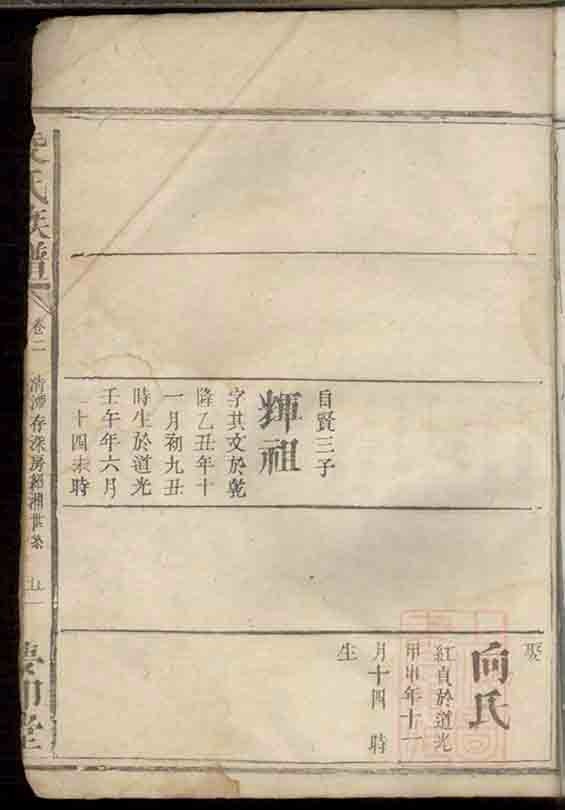 自賢三子
輝祖
字其文於乾
隆乙丑年十
一月初九丑
時生於道光
壬午年六月
二十四未時
娶
向氏
紅貞於道光
甲申年十一
月十四 時
生
氏族譜
卷二
清潭存深房 湘世系
五
堂